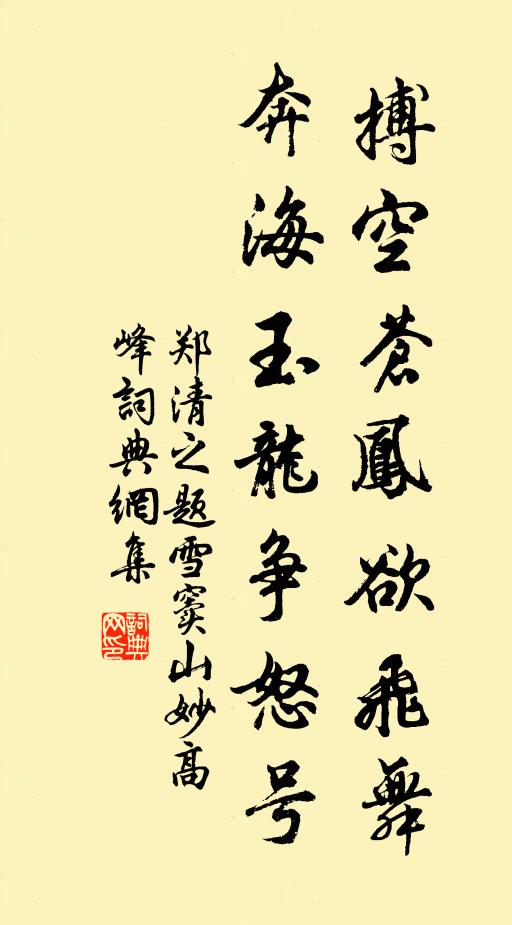 搏空蒼鳳欲飛舞
奔海玉龍争怒号
郑清之题雪窦山妙高
峰詞典網集
詞典网印